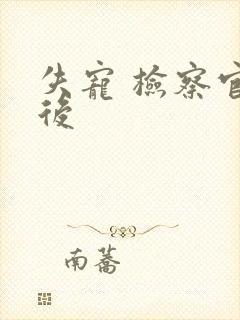 失寵 檢察官
後
南蕎